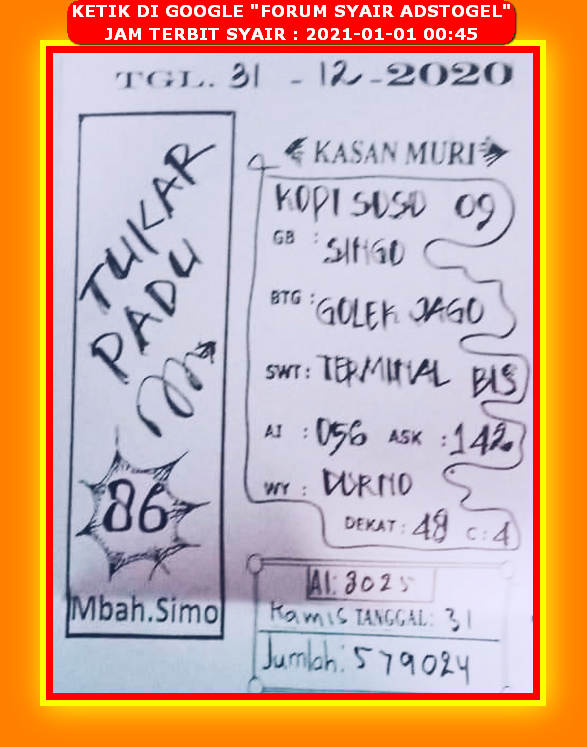 KETIK DI GOOGLE "FORUM SYAIR ADSTOGEL"
JAM TERBIT SYAIR : 2021-01-01 00:45
TGL. 31 - 12 - 2020
TUKAR
PADU
86
Mbah.Simo
KASAN MURI
KOPI SUSU 09
GB : SINGO
BTG : GOLEK JAGO
SWT : TERMINAL BIS
AI : 056 ASK : 142
WY : DURNO
DEKAT : 48 C : 4
AI: 3025
Kamis TANGGAL: 31
Jumlah: 579024